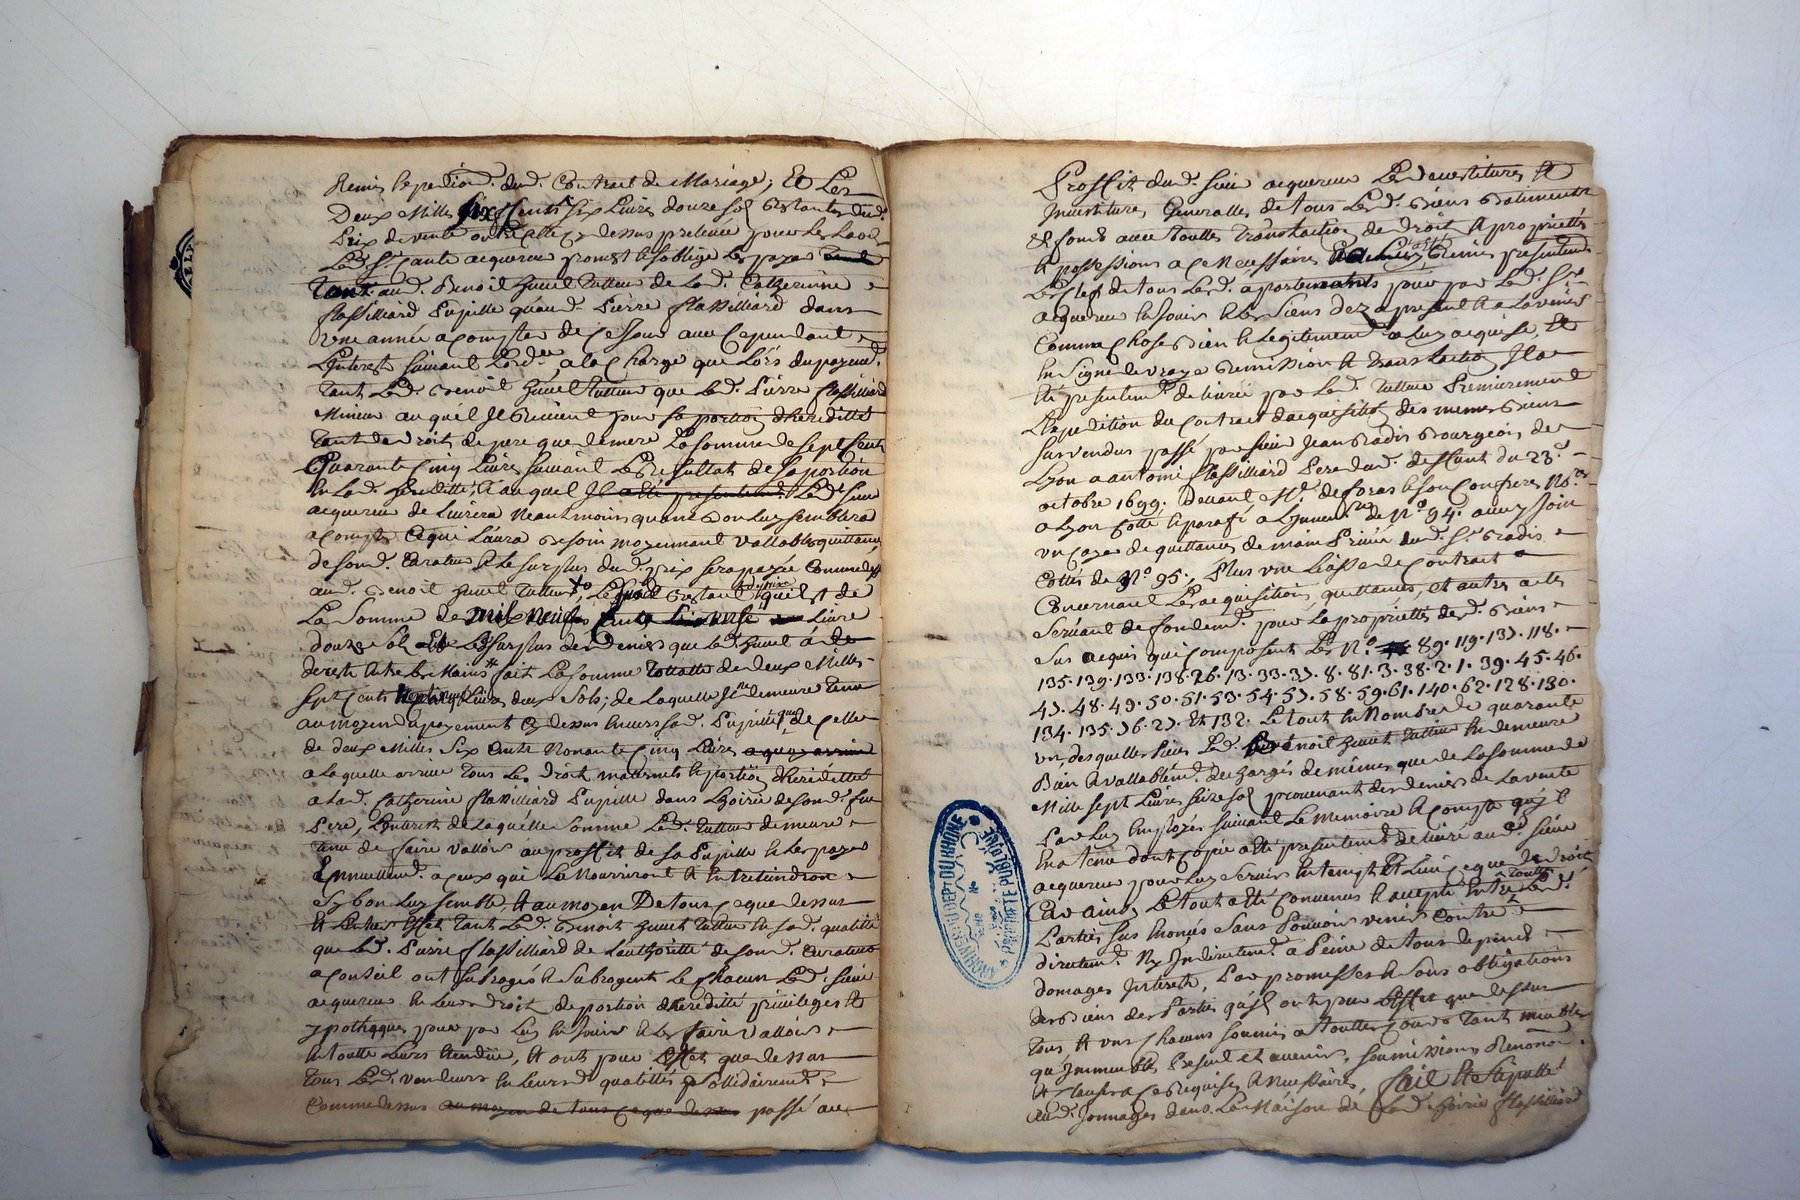 Remis lexpedion. dud. Contrait de Mariage; Et Les
Deux Mille six livres douze sol Restantes dud.
Prix de vente outre celle cy dessus pour les
Led. Sr. acquereur promet & soblige les payer
Tant aud. Benoit Tutteur de lad. Catherinne
flassilliard Pupille quaud. Pierre flassilliard dans
une année a compter de ce Jour avec Cependant
Linterest suivant Lord. a la Charge que Lors du payem.
Tant Led. Benoit Tutteur que Led. Pierre flassilliard
Mineur auquel Il Revient pour sa portion dhereditté
Tant de droits de pere que de mere La somme de sept Cents
Quarante Cinq Livres suivant Le Resultat de sa portion
En Lad. heredité, & auquel Il a été presentem. Led. sieur
acquereur delivrera Neantmoins quant bon luy semblera
acompte Ce qui Laura besoin moyennant vallable quittance
de sond. Curateur & Le surplus dud. prix sera payée Comme
aud. Benoit Tutteur, Restant quil est de
La Somme de mil neuf Cents Livre
douze sol Et Le surplus des deniers que Led. à de
dereste Entre les Mains fait La somme tottalle de deux Milles
sept Cents Livres deux sols; de Laquelle Il demeure Tenu
au moyen du payement cy dessus Envers sad. Pupille que de Celle
de deux Milles Six Cents Nonante Cinq Livres
a laquelle arrive tous Les Droit maternels & portion dheredittée
a lad. Catherine flassilliard Pupille dans Lhoirie de son d. feu
Pere, Linterest de Laquelle somme Led. Tutteur demeure
tenu de faire valloir au proffit de sa Pupille & Les payer
annuellem. a ceux qui La Nourriront & Entretiendront
sy bon Luy semble, & au moyen De tous ce que dessus
Tant Led. Benoit Tutteur En sad. qualitté
que Led. Pierre flassilliard de Lauthoritté de son d. Curateur
a Conseil ont subrogés & subrogent Le chacun Led. sieur
acquereur En Leurs droit de portion dhereditté privileges &
ypotheques pour par Luy En Jouir & Les faire valloir
En toutte Leurs Etendüe, & ont pour Effet que dessus
Tous Led. vendeurs En Leurs d. qualittés sollidairem.
Comme dessus au moyen de tous ce que dessus passé au
Proffit dud. sieur acquereur Les devestitures &
Investitures Generalles de tous Les d. Biens Batiments
& fonds avec touttes translaction de droit & proprietté
& possessions a ce Necessaires Remis presentem.
Les Clef de tous Les d. apartements pour par Led. Sr.
acquereur En Jouir & les siens dez a present & a Lavenir
Comme Chose bien & Legitimement a Luy acquise, &
En signe de vraye Remission & translaction Il a
été presentem. delivrée par Led. Tutteur Premierement
Lexpedition du Contract dacquisition des mesmes Biens
sus vendus passé par sieur Jean Radis Bourgeois de
Lyon a antoine flassilliard Pere dud. deffunt du 23.
octobre 1699. Devant Me. deforas & son Confrere No.res
a Lyon Cotté & parafé a Linven.re de No. 94. avec Join
un cayer de quittances de main Privée dud. Sr. Radis
Cottés de No. 95. Plus une Liasse de Contrait
Concernant Les acquisitions, quittances, et autres actes
servant de fondem. pour la proprietté des d. Biens
sus acquis qui Composent Les No. 89. 119. 137. 118.
135. 139. 133. 138. 26. 13. 33. 37. 8. 81. 3. 38. 2. 1. 39. 45. 46.
47. 48. 49. 50. 51. 53. 54. 57. 58. 59. 61. 140. 62. 128. 130.
134. 135. 36. 27. Et 132. Le tout En Nombre de quarante
un, desquelles pieces Led. Benoit Tutteur En demeure
Bien & vallablem. dechargés de mêmes que de La somme de
Mille sept Livres seize sol provenant des deniers de La vente
Par Luy Employés suivant Le Memoire & Compte quil
En a tenu dont Copie a été presentem. delivré aud. sieur
acquereur pour Luy servir En temps & Lieu ce que de droit
Car ainsy Le tout a été Convenus & accepté Entre Les d.
touttes
Parties sus Nomées sans Pouvoir venir Contre
directem. Ny Indirectem. a Peine de tous depens
domages Interests, Par promesses & sous obligations
des Biens des Parties quils ont pour Effet que dessus
tous & uns Chacuns soumis a touttes Cours Tant meubles
qu'Immeubles Present et avenir, soumissions Renonon.
& Clauses a ce Requises & Necessaires, fait & stipullé
aud. Jonnages dans La Maison de Lad. hoirie flassilliard
ARCHIVES DU DEPT DU RHONE